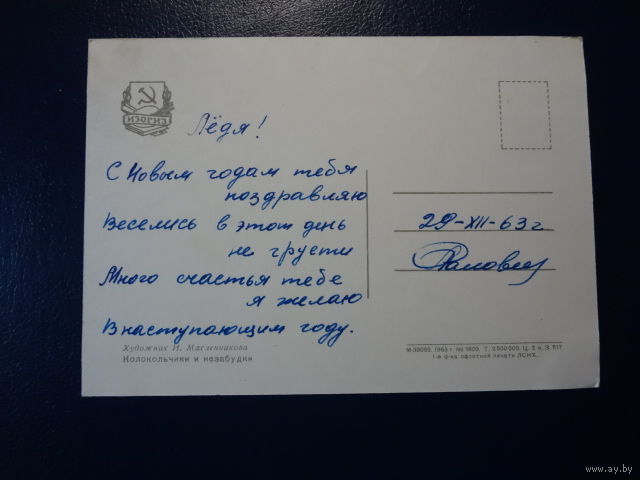 ИЗОГИЗ
Лёдя!
С Новым годам тебя
поздравляю
Веселись в этот день
не грусти
Много счастья тебе
я желаю
В наступающим году.
29-XII-63 г.
Художник И. Масленникова
Колокольчики и незабудки
1-я ф-ка офсетной печати ЛСНХ.
www.ay.by